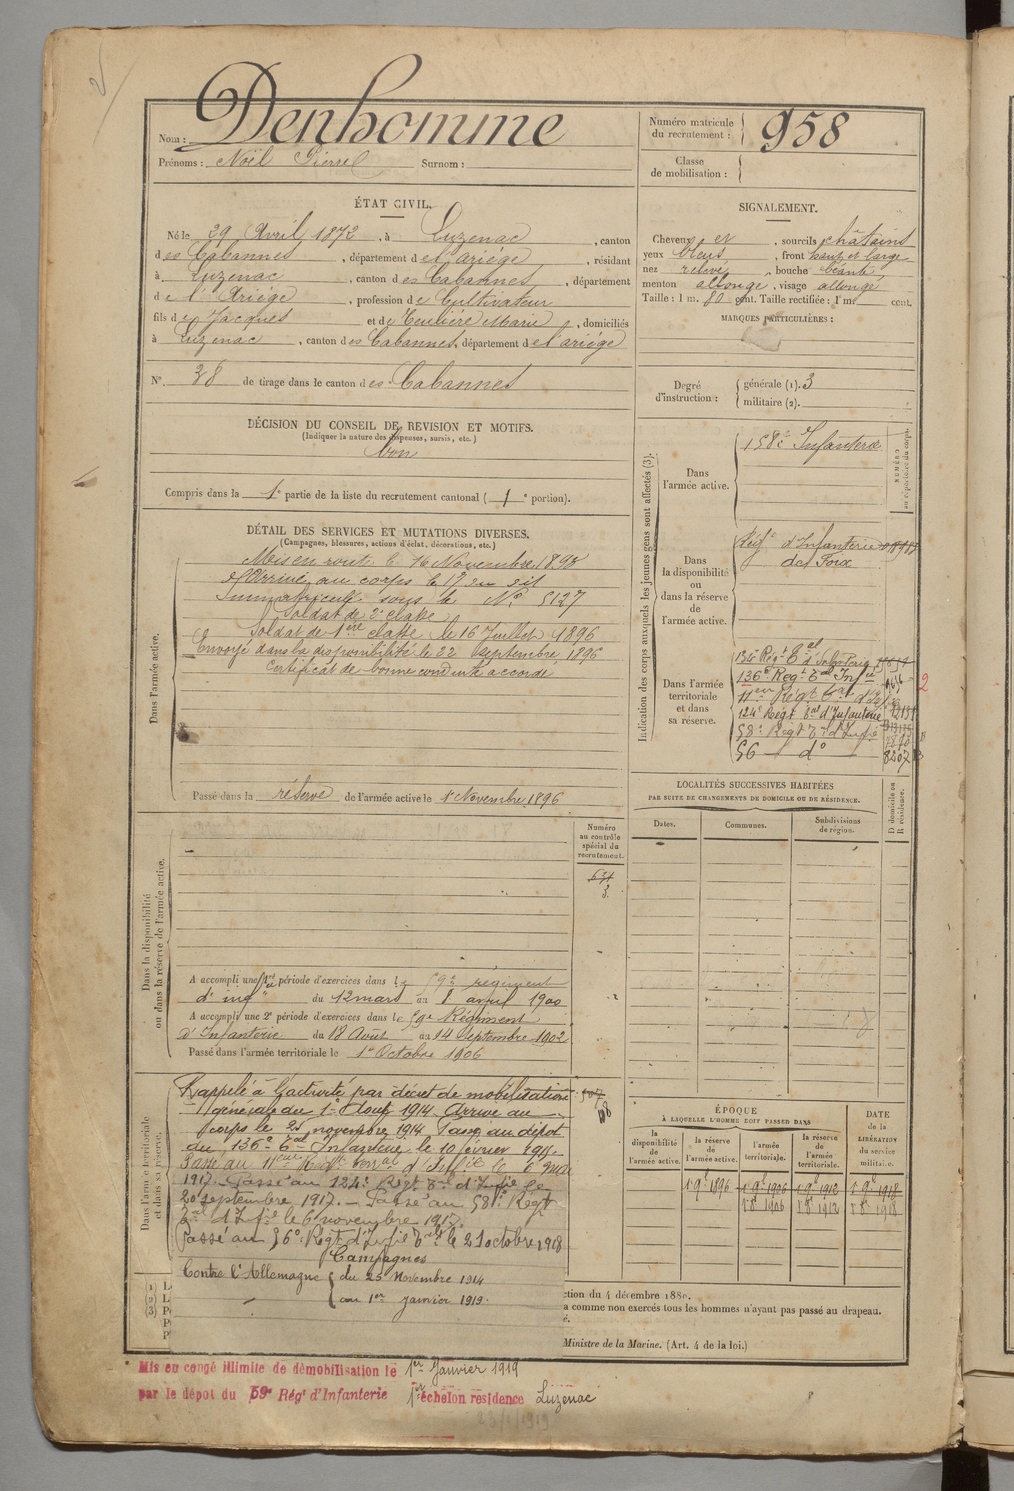 Nom : Denhomme
Prénoms : Noël Pierre Surnom :
Numéro matricule
du recrutement : 958
Classe
de mobilisation :
ÉTAT CIVIL.
Né le 29 Avril 1872, à Luzenac, canton
des Cabannes, département de l'ariège, résidant
à Luzenac, canton des Cabannes, département
de l'Ariège, profession de Cultivateur
fils de Jacques et de Teulière Marie, domiciliés
à Luzenac, canton des Cabannes, département de l'ariège
N° 38 de tirage dans le canton des Cabannes
SIGNALEMENT.
Cheveux et, sourcils châtains
yeux bleus, front haut et large
nez relevé, bouche béante,
menton allongé, visage allongé
Taille : 1 m. 80 cent. Taille rectifiée : 1 m. cent.
MARQUES PARTICULIÈRES :
Degré
d'instruction :
générale (1). 3
militaire (2).
DÉCISION DU CONSEIL DE REVISION ET MOTIFS.
(Indiquer la nature des dispenses, sursis, etc.)
bon
Compris dans la 1e partie de la liste du recrutement cantonal (1e portion).
DÉTAIL DES SERVICES ET MUTATIONS DIVERSES.
(Campagnes, blessures, actions d'éclat, décorations, etc.)
Dans l'armée active.
Mis en route le 16 Novembre 1893
Arrivé au corps le 17 du dit
Immatriculé sous le N° 5127
Soldat de 2e classe
Soldat de 1ère classe le 16 Juillet 1896
Envoyé dans la disponibilité le 22 Septembre 1896
Certificat de bonne conduite accordé
Passé dans la réserve de l'armée active le 1er Novembre 1896
Indication des corps auxquels les jeunes gens sont affectés (3).
Dans
l'armée active.
158e Infanterie
NUMÉRO
au répertoire du corps.
Dans
la disponibilité
ou
dans la réserve
de
l'armée active.
Régt d'Infanterie
de Foix
Dans l'armée
territoriale
et dans
sa réserve.
134 Régt Tal d'Infanterie
136e Régt Tal Infie
11eme Régt Tal d'Infie
124e Régt Tal d'Infanterie
58e Régt Tal d'Infie
56 d°
2
LOCALITÉS SUCCESSIVES HABITÉES
PAR SUITE DE CHANGEMENTS DE DOMICILE OU DE RÉSIDENCE.
Dates. Communes. Subdivisions
de région.
D domicile ou
R résidence.
Numéro
au contrôle
spécial du
recrutement.
Dans la disponibilité
ou dans la réserve de l'armée active.
A accompli une 1re période d'exercices dans le 59e régiment
d'infie du 12 mars au 8 avril 1900
A accompli une 2e période d'exercices dans le 59e Régiment
d'Infanterie du 18 Août au 14 Septembre 1902
Passé dans l'armée territoriale le 1er Octobre 1906
Dans l'armée territoriale
et dans sa réserve.
Rappelé à l'activité par décret de mobilisation
générale du 1er Août 1914 Arrivé au
corps le 25 novembre 1914 Passé au dépôt
du 136e Tal Infanterie le 10 février 1915
Passé au 11eme Régt Terral d'Infie le 6 mai
1917. Passé au 124e Régt Tal d'Infie le
20 septembre 1917. — Passé au 58e Régt
Tal d'Infie le 6 novembre 1917.
Passé au 56e Régt d'Infie Tale le 21 octobre 1918
Campagnes
Contre l'Allemagne du 25 Novembre 1914
au 1er Janvier 1919.
ÉPOQUE
À LAQUELLE L'HOMME DOIT PASSER DANS
la
disponibilité
de
l'armée active.
la réserve
de
l'armée active.
l'armée
territoriale.
la réserve
de
l'armée
territoriale.
DATE
de la
LIBÉRATION
du service
militaire.
1 9e 1896 1 9e 1906 1 9e 1912 1 9e 1918
1 8e 1906 1 8e 1912 1 8e 1918
ction du 4 décembre 1889.
a comme non exercés tous les hommes n'ayant pas passé au drapeau.
Ministre de la Marine. (Art. 4 de la loi.)
Mis en congé illimité de démobilisation le 1er Janvier 1919
par le dépôt du 59e Régt d'Infanterie 1er échelon résidence Luzenac
23/1/1919